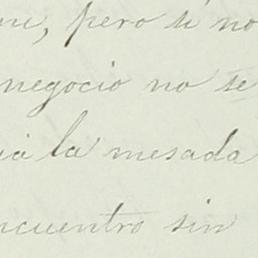 , pero si no
negocio no se
la mesada
ncuentro sin